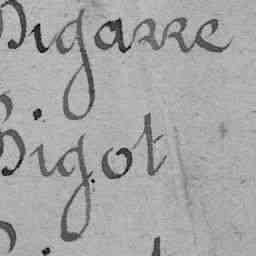 Bigarre
Bigot